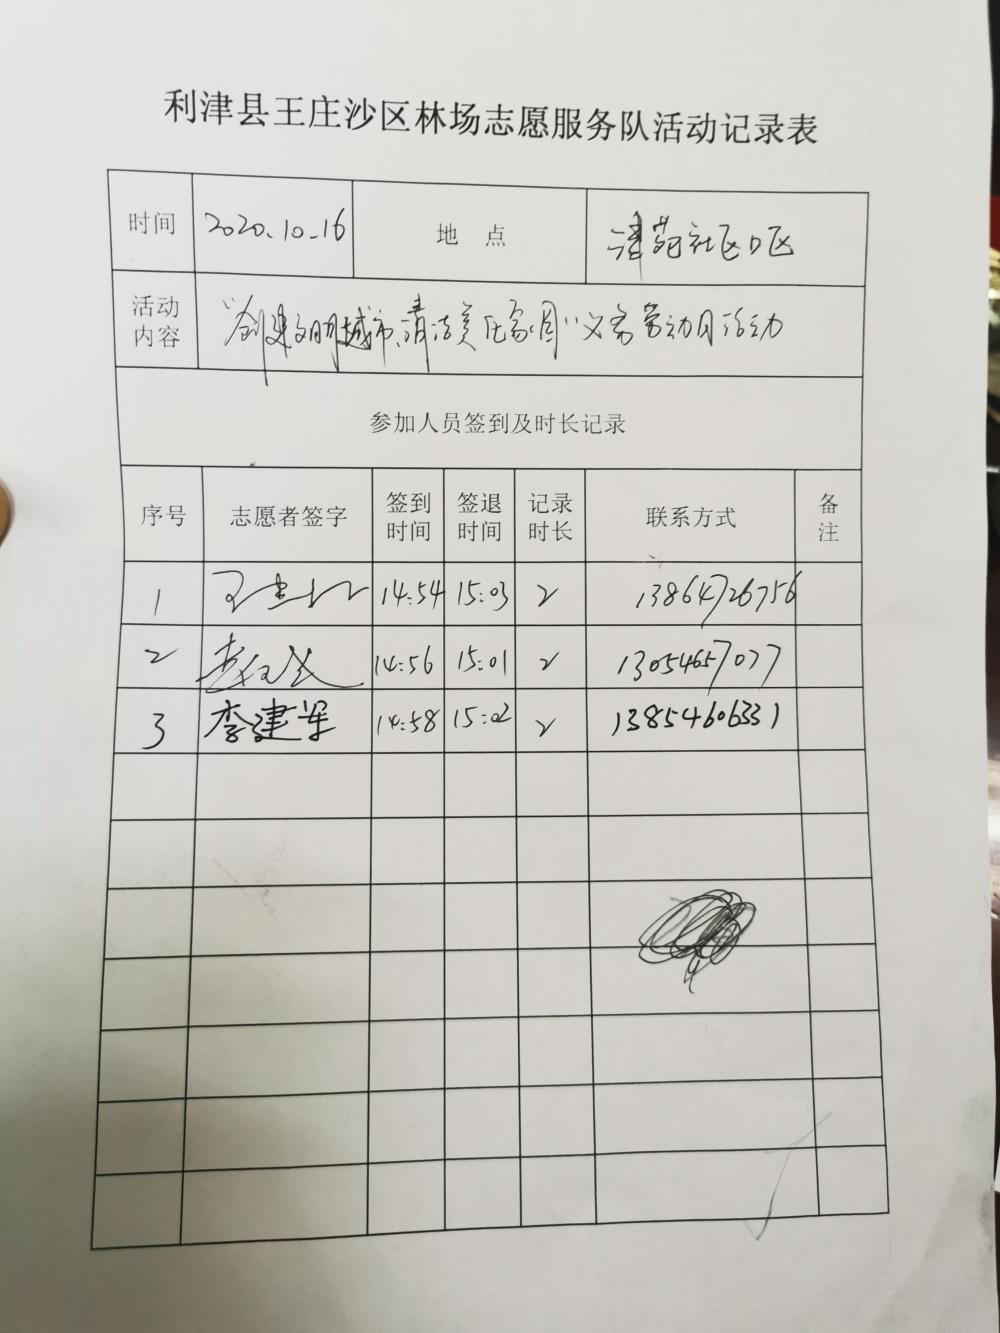 利津县王庄沙区林场志愿服务队活动记录表
时间 2020.10.16 地 点 津苑社区口区
活动内容 “创建文明城市、清洁美化家园”义务劳动月活动
参加人员签到及时长记录
序号 志愿者签字 签到时间 签退时间 记录时长 联系方式 备注
1 14:54 15:03 2 13864726756
2 14:56 15:01 2 13054657077
3 李建军 14:58 15:02 2 13854606331